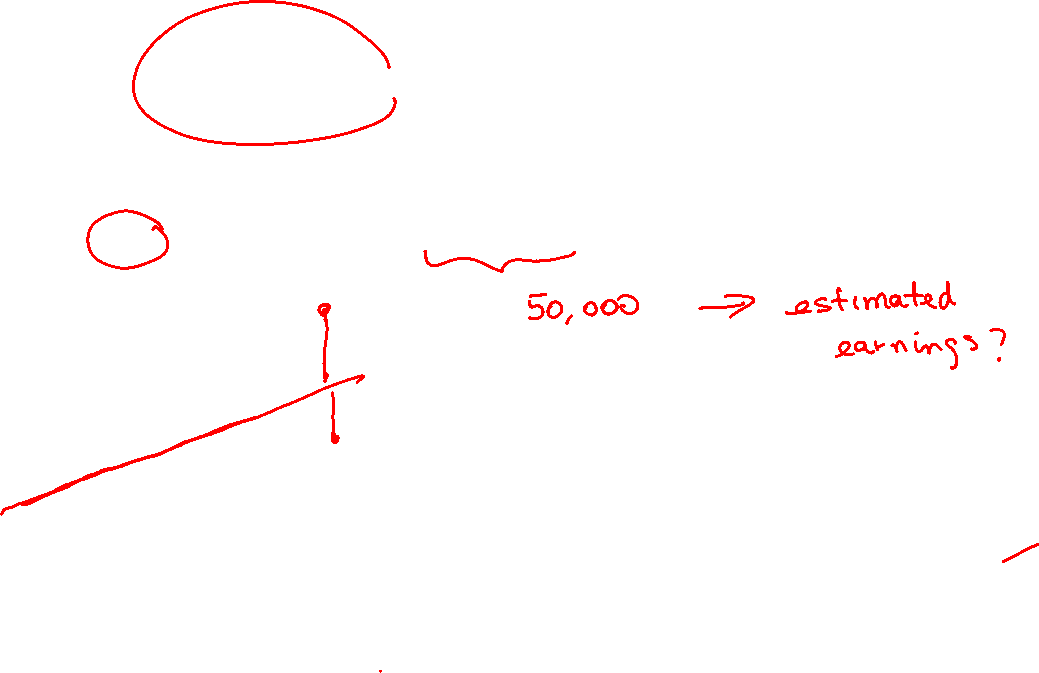 50,000 → estimated
earnings?